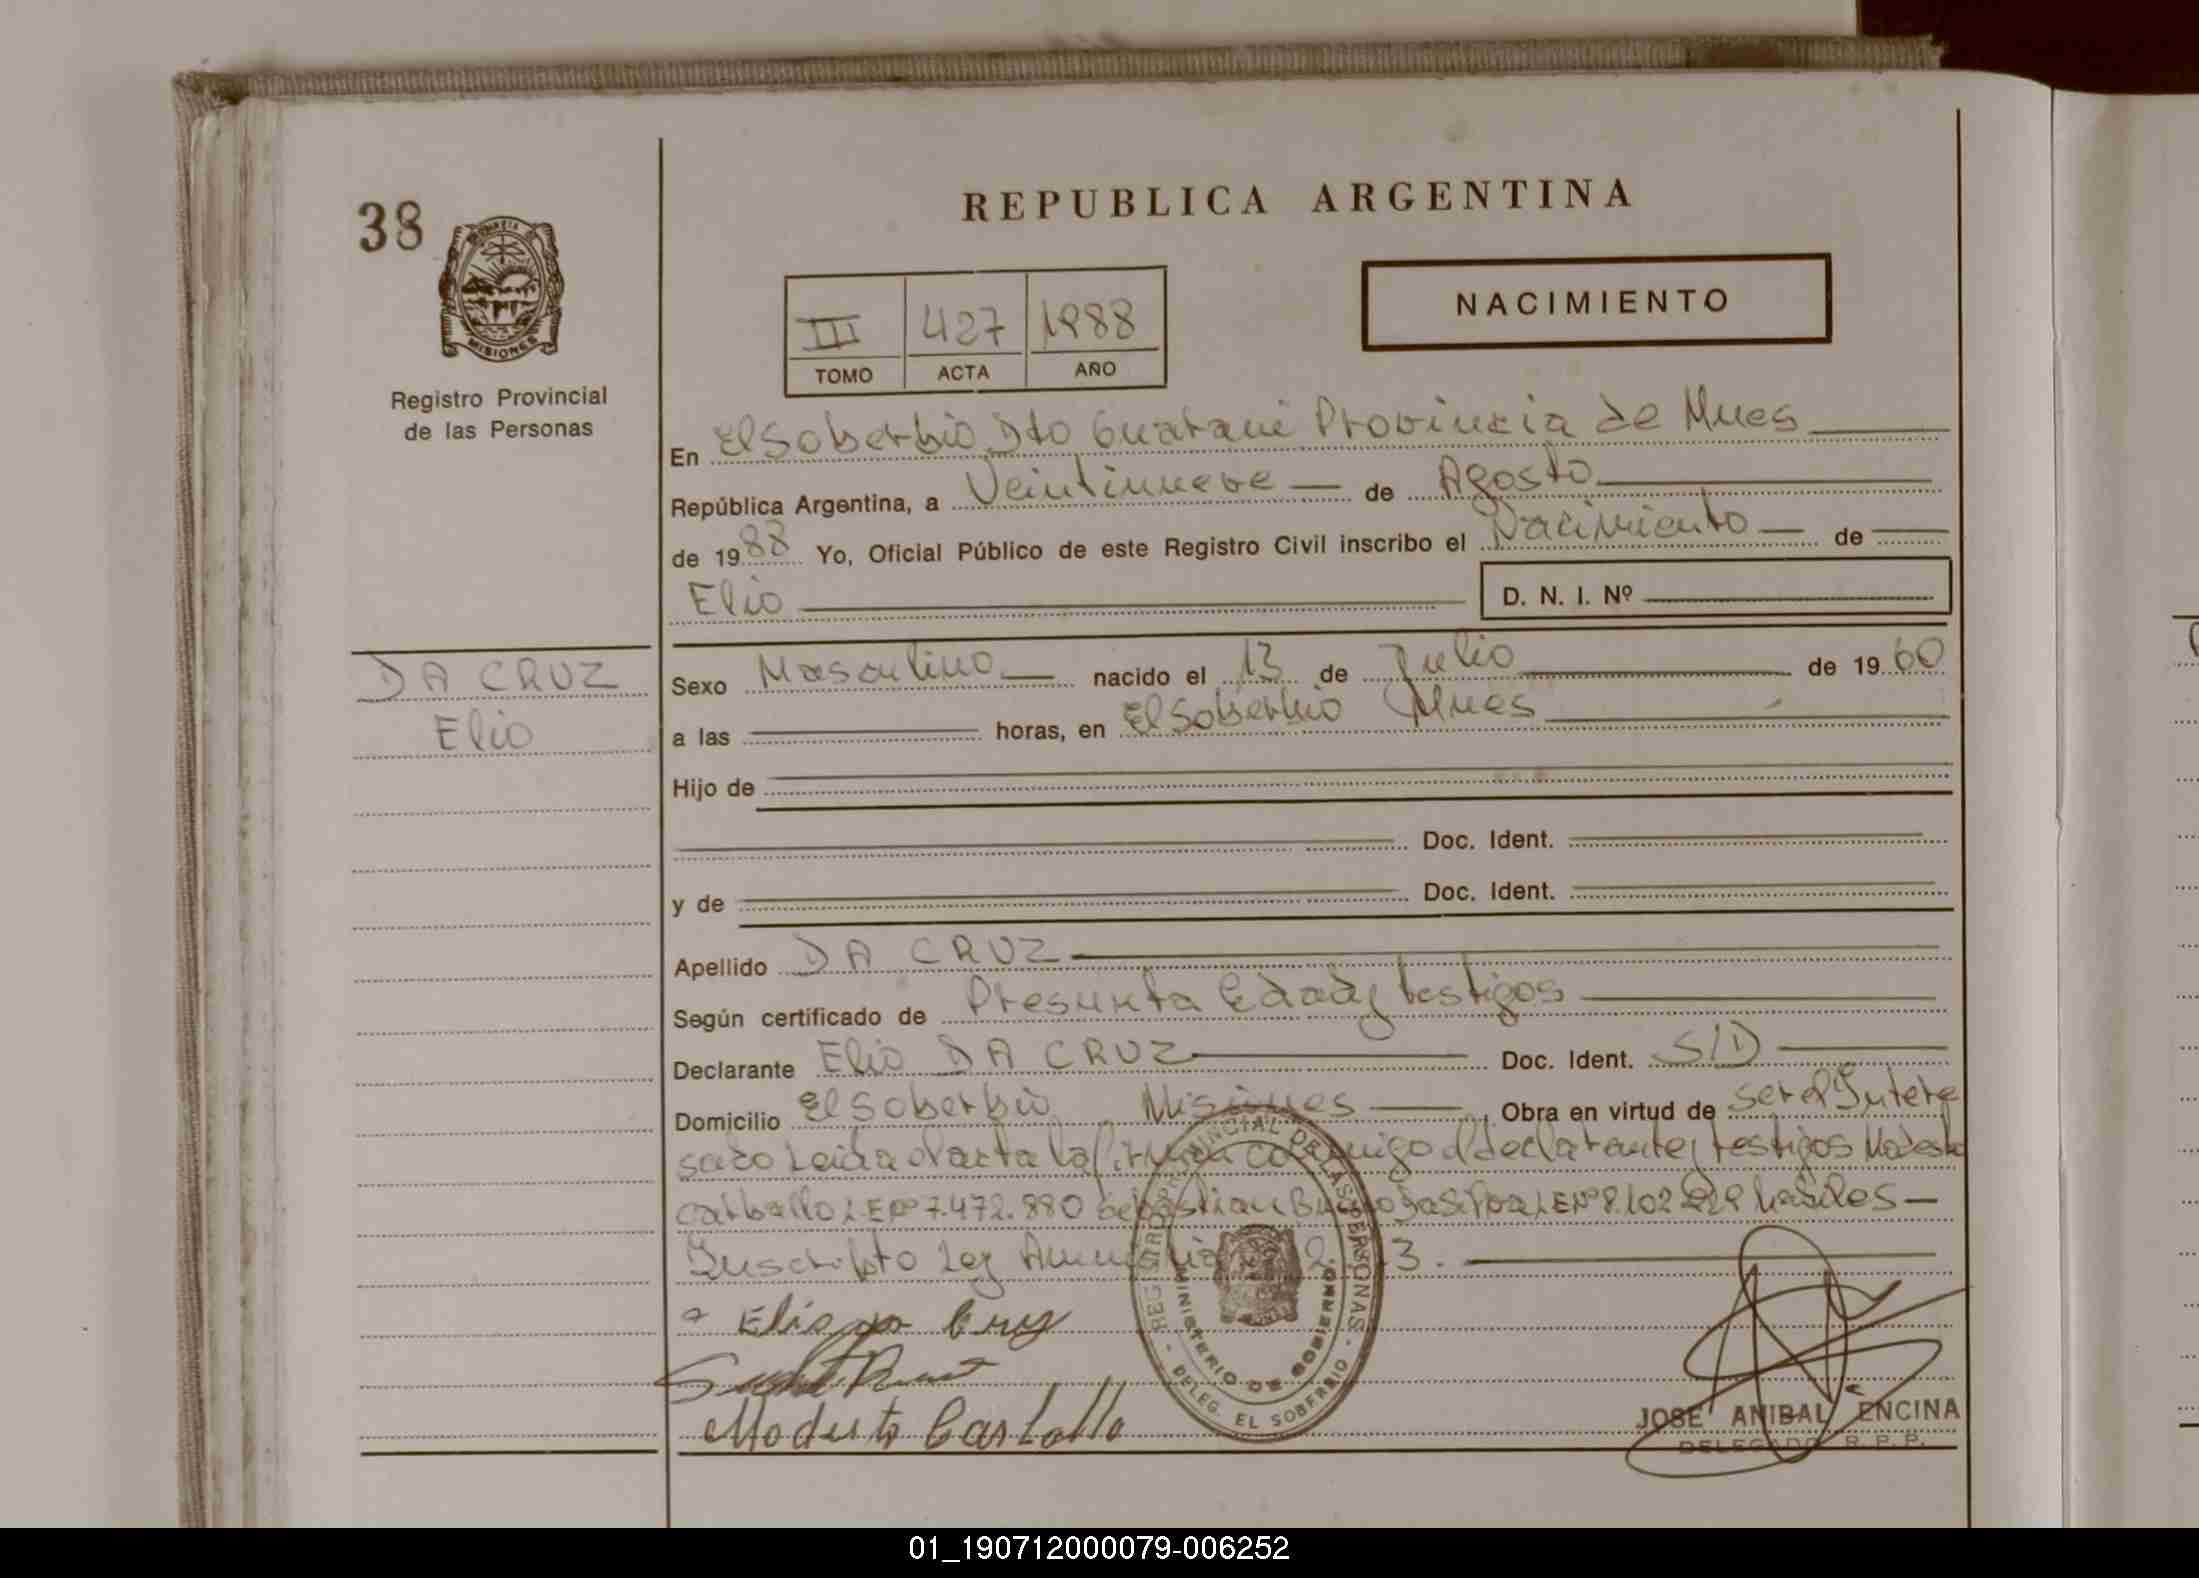 REPUBLICA ARGENTINA
38
PROVINCIA DE
MISIONES
Registro Provincial
de las Personas
III 427 1988
TOMO ACTA AÑO
NACIMIENTO
En El Soberbio Dto Guarani Provincia de Mnes
República Argentina, a Veintinueve de Agosto
de 1988 Yo, Oficial Público de este Registro Civil inscribo el Nacimiento de
Elio D. N. I. Nº
DA CRUZ
Elio
Sexo Masculino nacido el 13 de Julio de 1960
a las horas, en El Soberbio Mnes
Hijo de
Doc. Ident.
y de Doc. Ident.
Apellido DA CRUZ
Según certificado de Presunta Edad y testigos
Declarante Elio DA CRUZ Doc. Ident. S/D
Domicilio El Soberbio Misiones, Obra en virtud de ser el Intere
sado Leida el acta la firman conmigo el declarante y testigos Modesto
Carballo L.E Nº 7.472.880 Sebastian L E Nº 8.102
Inscripto Ley 3.
Elio Da Cruz
Modesto Carballo
REGISTRO PROVINCIAL DE LAS PERSONAS
MINISTERIO DE GOBIERNO
DELEG. EL SOBERBIO
JOSE ANIBAL ENCINA
DELEGADO R. P. P.
01_190712000079-006252